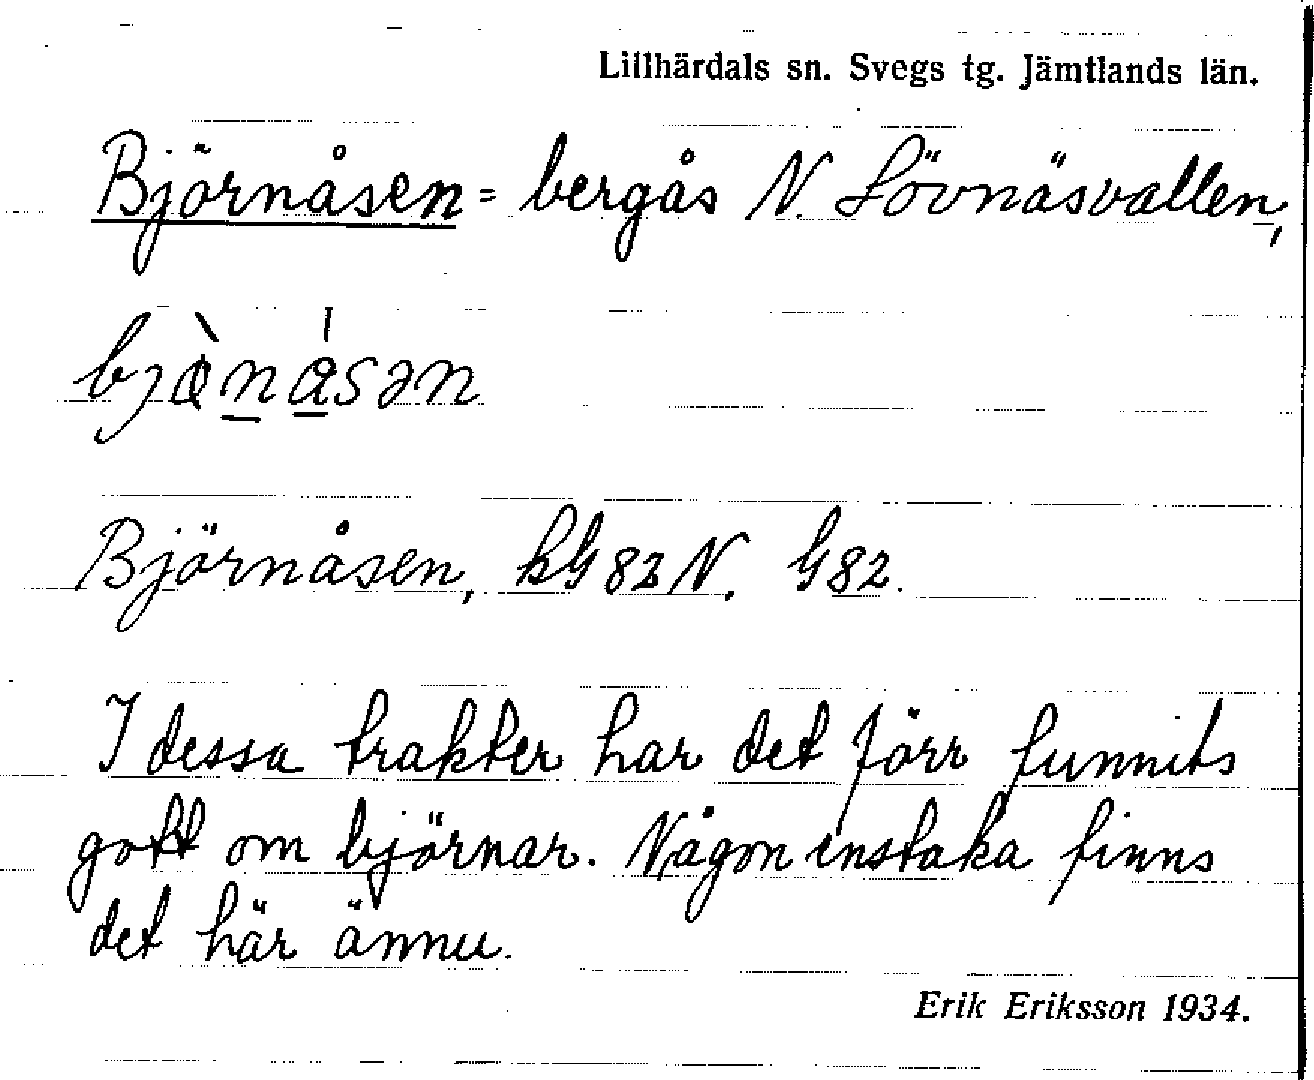 Lillhärdals sn. Svegs tg. Jämtlands län.
Björnåsen = bergås N. Lövnäsvallen,
Björnåsen, kG82N. G82.
I dessa trakter har det förr funnits
gott om björnar. Någon enstaka finns
det här ännu.
Erik Eriksson 1934.